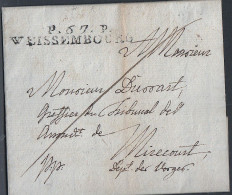 P. 67. P.
WEISSEMBOURG
A Monsieur
Monsieur
Greffier au Tribunal de
de
Mirecourt
Dept. des Vosges.